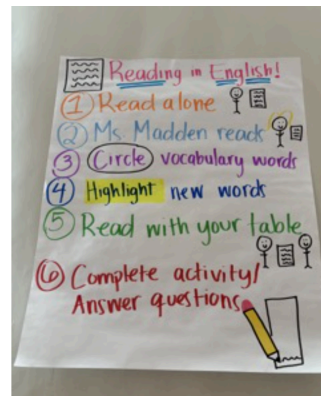 Reading in English!
1 Read alone
2 Ms. Madden reads
3 Circle vocabulary words
4 Highlight new words
5 Read with your table
6 Complete activity/
Answer questions